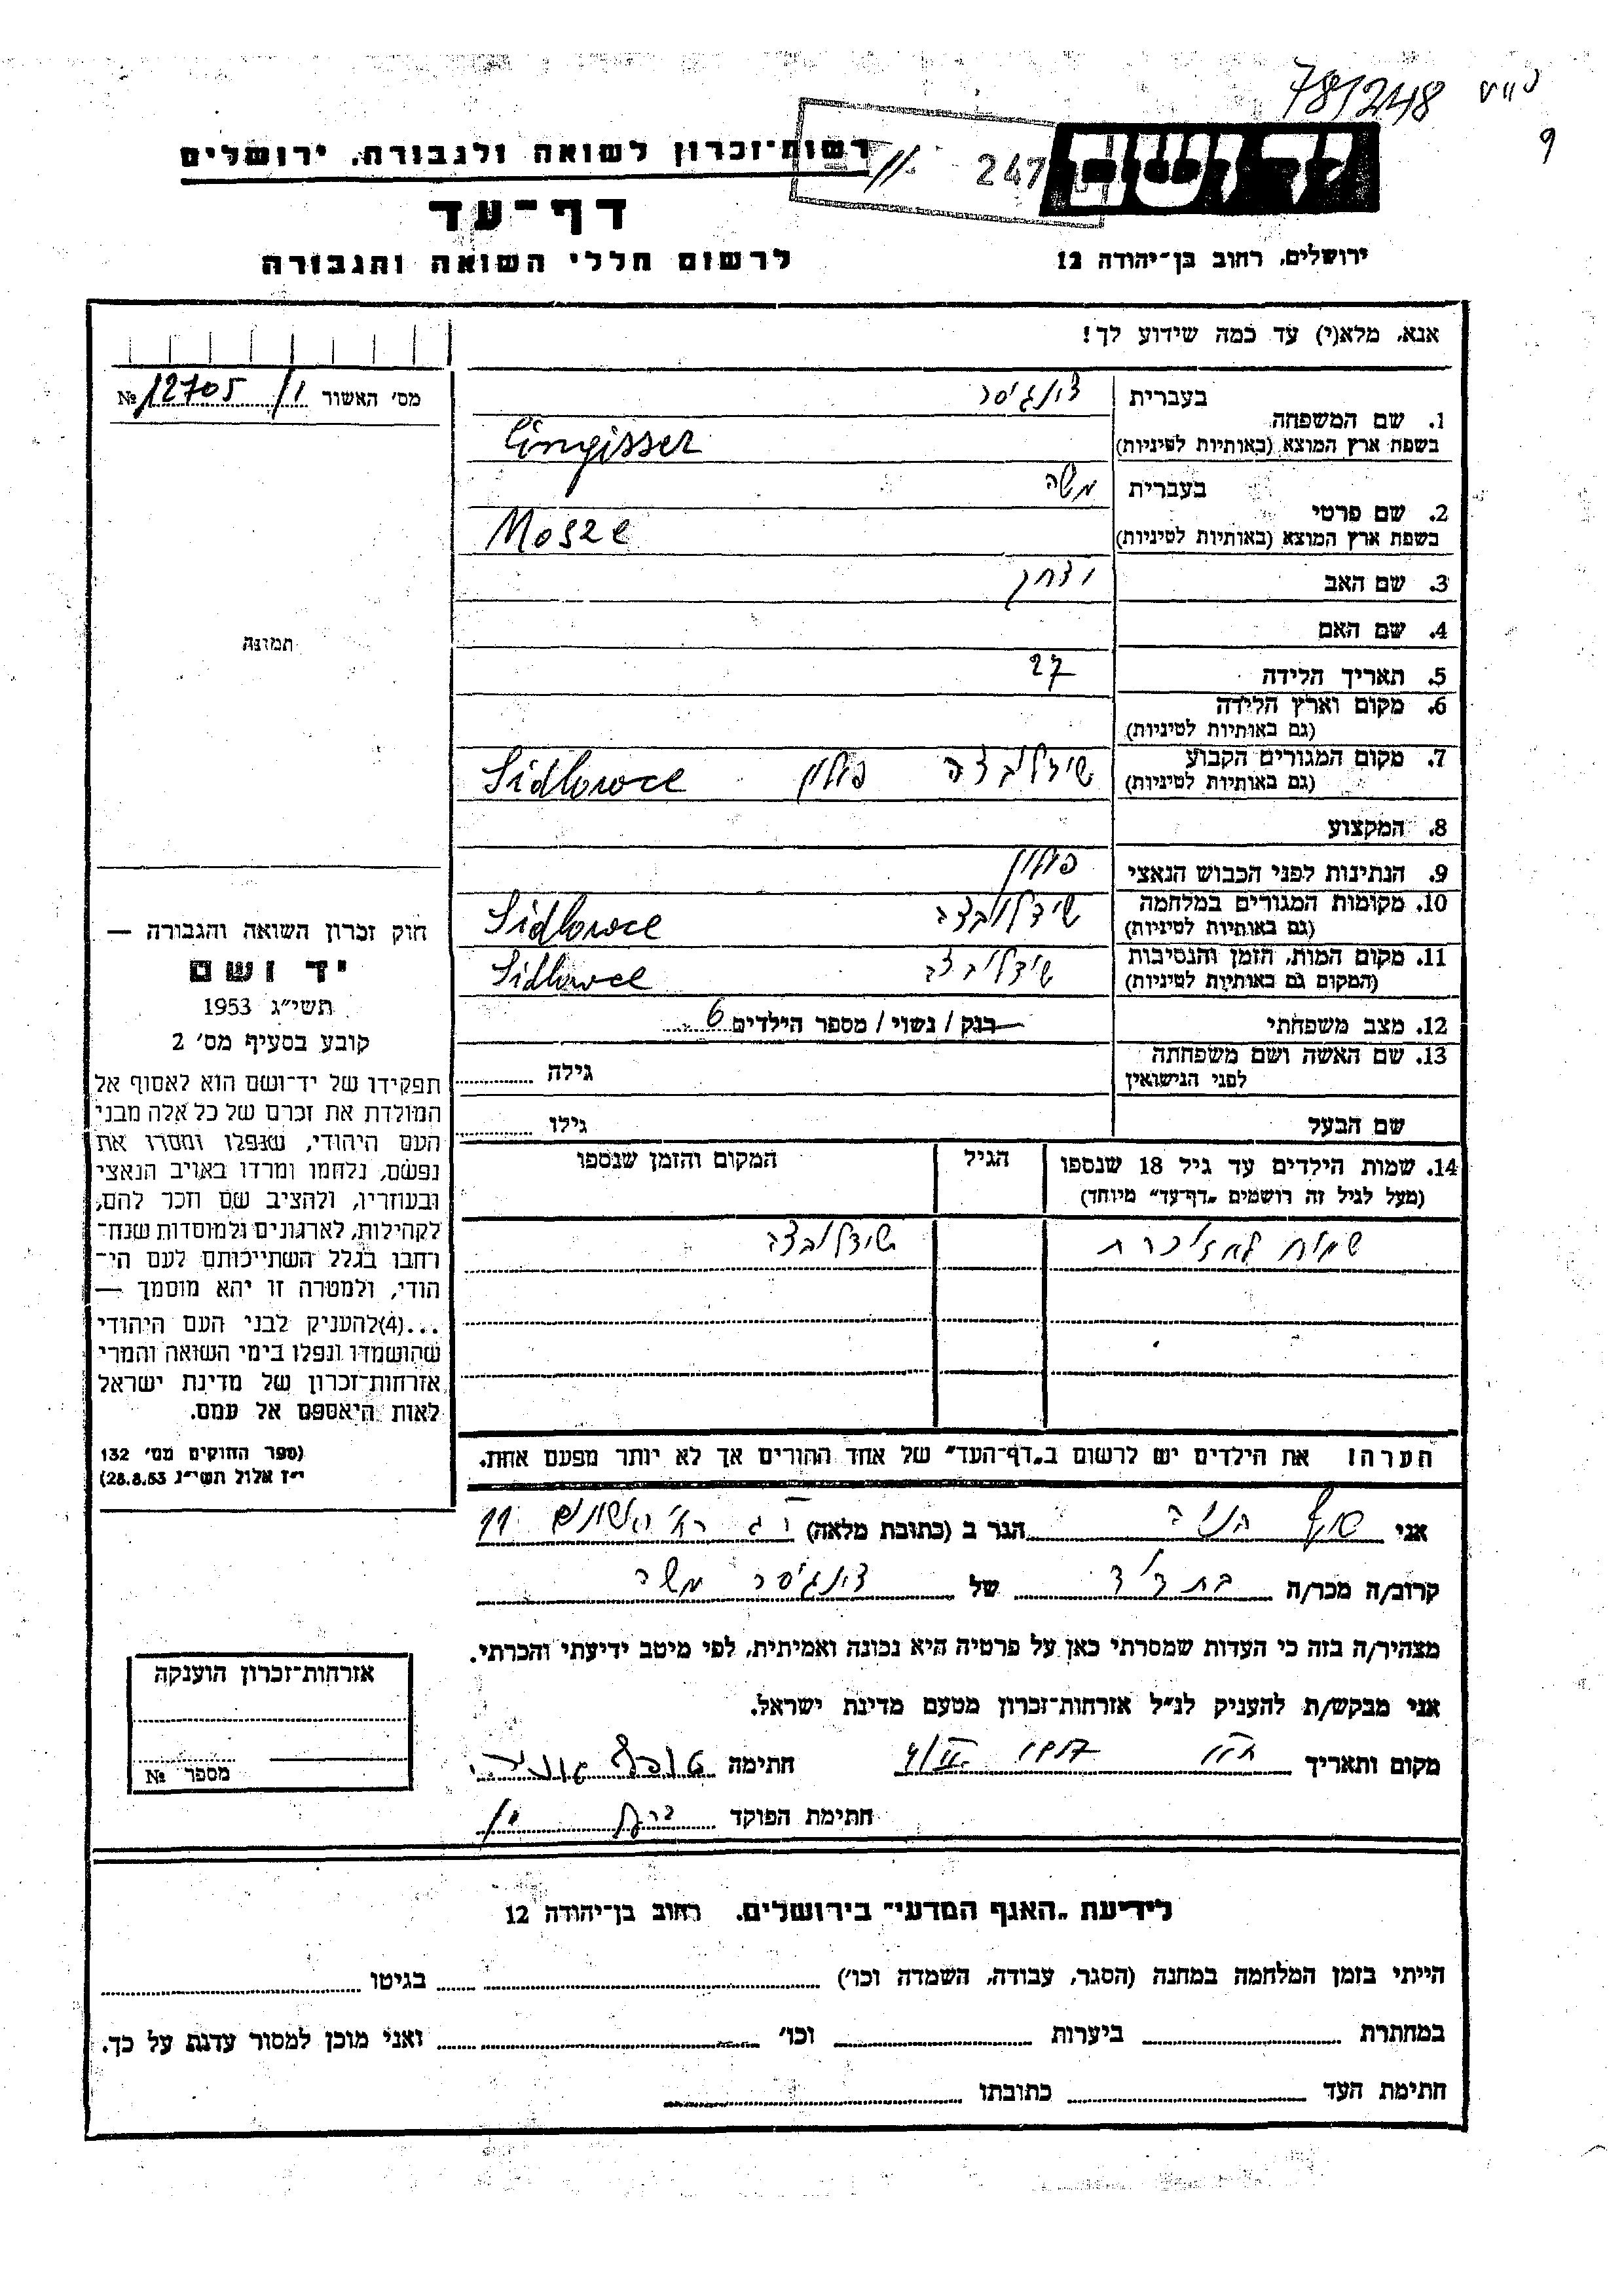 781248
9
רשות־זכרון לשואה ולגבורה, ירושלים
247
דף־עד
לרשום חללי השואה והגבורה
ירושלים, רחוב בן־יהודה 12
אנא, מלא(י) עד כמה שידוע לך!
מס' האשור 12705/1 №
1. שם המשפחה
בעברית צינגיסר
בשפת ארץ המוצא (באותיות לטיניות) Cingisser
2. שם פרטי
בעברית משה
בשפת ארץ המוצא (באותיות לטיניות) Mosze
3. שם האב יצחק
4. שם האם
5. תאריך הלידה 27
6. מקום וארץ הלידה
(גם באותיות לטיניות)
7. מקום המגורים הקבוע שידלובצה פולין Sidlowce
(גם באותיות לטיניות)
8. המקצוע
9. הנתינות לפני הכבוש הנאצי פולין
10. מקומות המגורים במלחמה שידלובצה Sidlowce
(גם באותיות לטיניות)
11. מקום המות, הזמן והנסיבות שידלובצה Sidlowce
(המקום גם באותיות לטיניות)
12. מצב משפחתי רוק / נשוי / מספר הילדים 6
13. שם האשה ושם משפחתה
לפני הנישואין גילה
שם הבעל גילו
14. שמות הילדים עד גיל 18 שנספו הגיל המקום והזמן שנספו
(מעל לגיל זה רושמים „דף־עד" מיוחד)
שמות לא זוכרת שידלובצה
הערה: את הילדים יש לרשום ב„דף־העד" של אחד ההורים אך לא יותר מפעם אחת.
תמונה
חוק זכרון השואה והגבורה —
יד ושם
תשי"ג 1953
קובע בסעיף מס' 2
תפקידו של יד־ושם הוא לאסוף אל
המולדת את זכרם של כל אלה מבני
העם היהודי, שנפלו ומסרו את
נפשם, נלחמו ומרדו באויב הנאצי
ובעוזריו, ולהציב שם וזכר להם,
לקהילות, לארגונים ולמוסדות שנח־
רחבו בגלל השתייכותם לעם הי־
הודי, ולמטרה זו יהא מוסמך —
...(4) להעניק לבני העם היהודי
שהושמדו ונפלו בימי השואה והמרי
אזרחות־זכרון של מדינת ישראל
לאות היאספם אל עמם.
(ספר החוקים מס' 132
י"ז אלול תשי"ג 28.8.53)
אני הגר ב (כתובת מלאה) 11
קרוב/ה מכר/ה בת דוד של צינגיסר משה
מצהיר/ה בזה כי העדות שמסרתי כאן על פרטיה היא נכונה ואמיתית, לפי מיטב ידיעתי והכרתי.
אני מבקש/ת להעניק לנ"ל אזרחות־זכרון מטעם מדינת ישראל.
מקום ותאריך חתימה
חתימת הפוקד
אזרחות־זכרון הוענקה
מספר №
לידיעת „האגף המדעי" בירושלים, רחוב בן־יהודה 12
הייתי בזמן המלחמה במחנה (הסגר, עבודה, השמדה וכו') בגיטו
במחתרת ביערות וכו' ואני מוכן למסור עדות על כך.
חתימת העד כתובתו